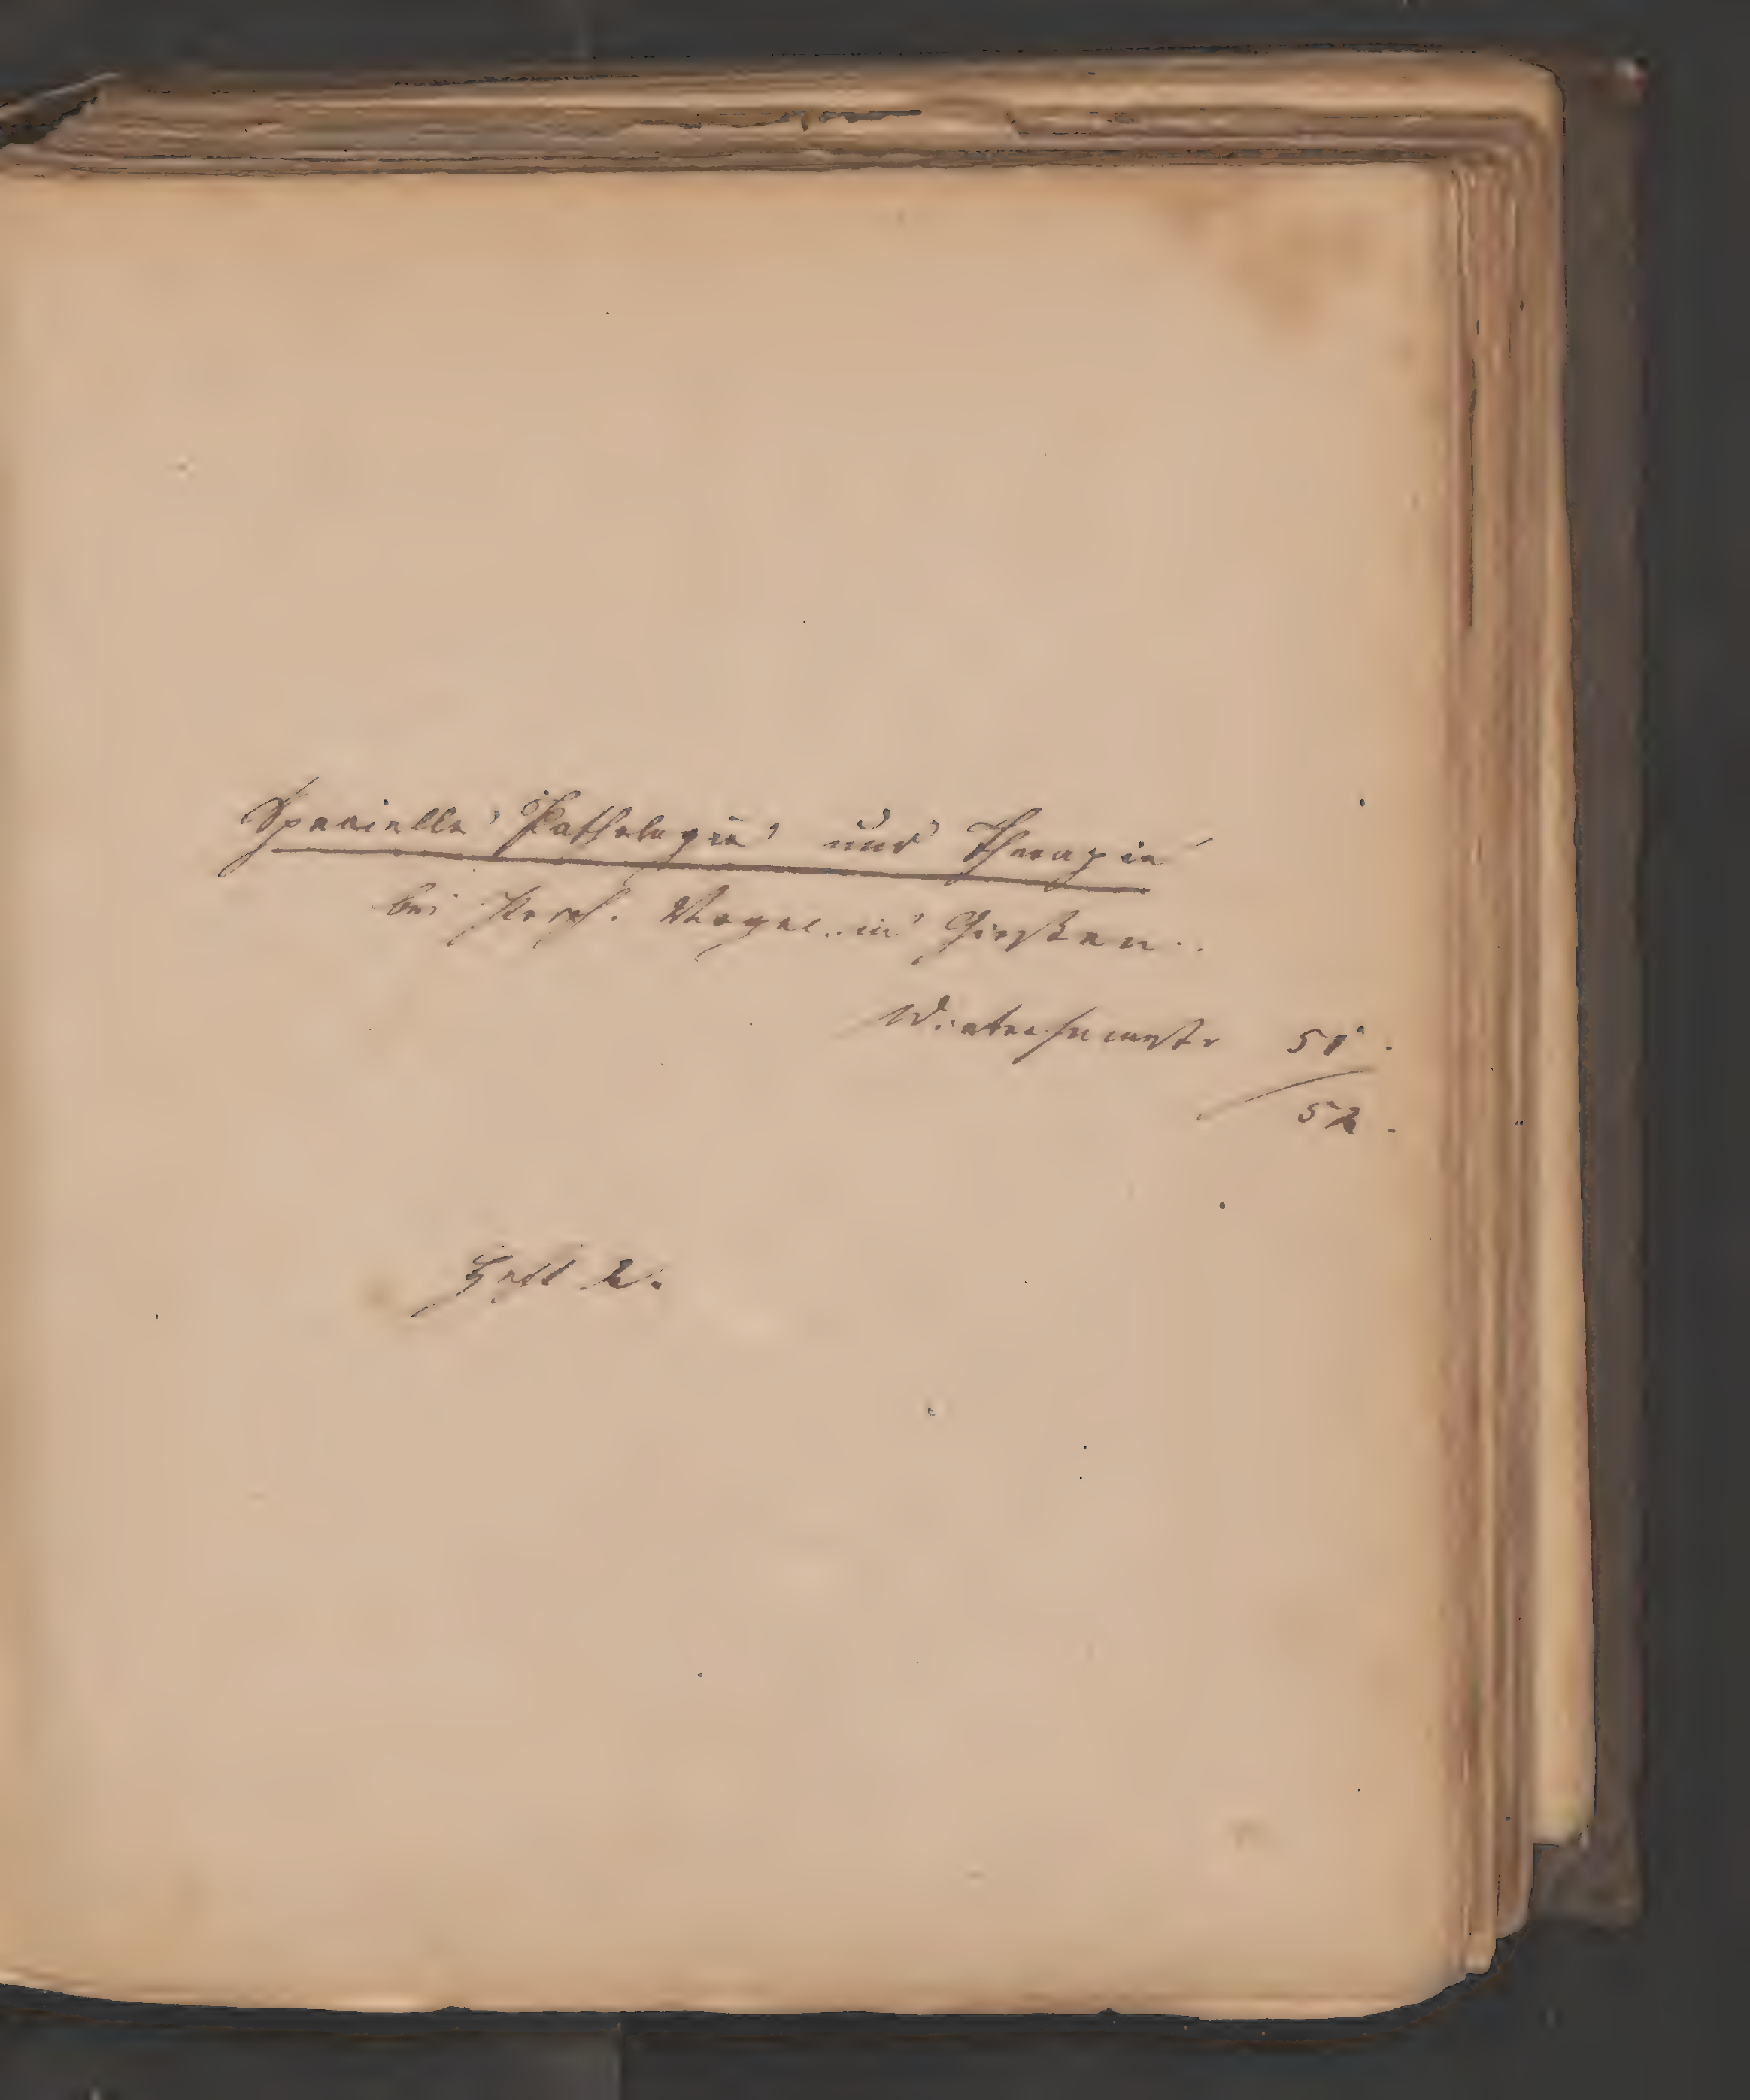 Specielle Pathologie und Therapie
bei Prof. Vogel in Giesßen.
Wintersemestr 51.
52.
Heft 2.